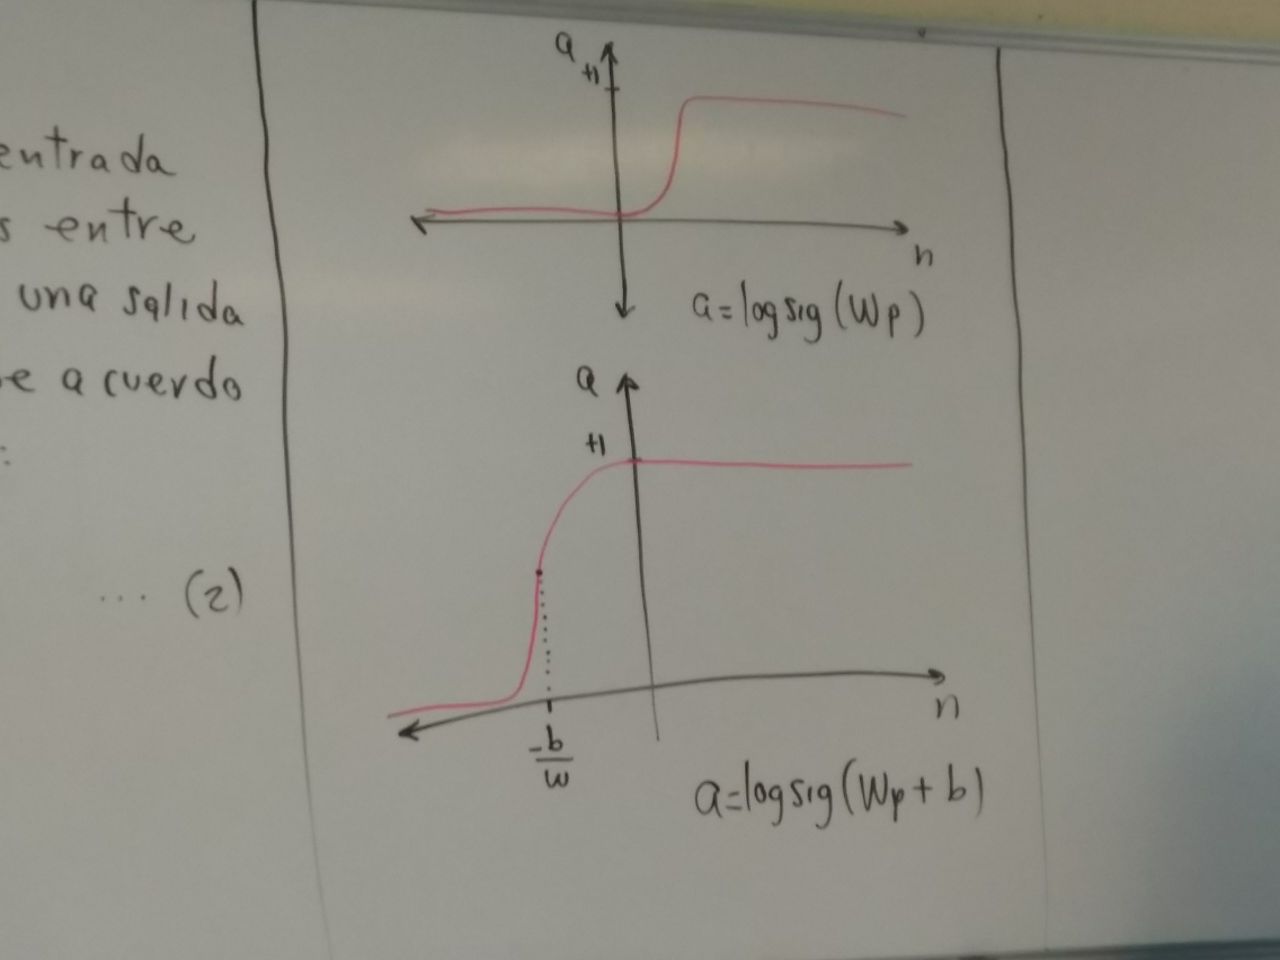 entrada
s entre
una salida
e acuerdo
:
... (2)
a
+1
n
a=logsig(Wp)
a
+1
n
-b
w
a=logsig(Wp+b)